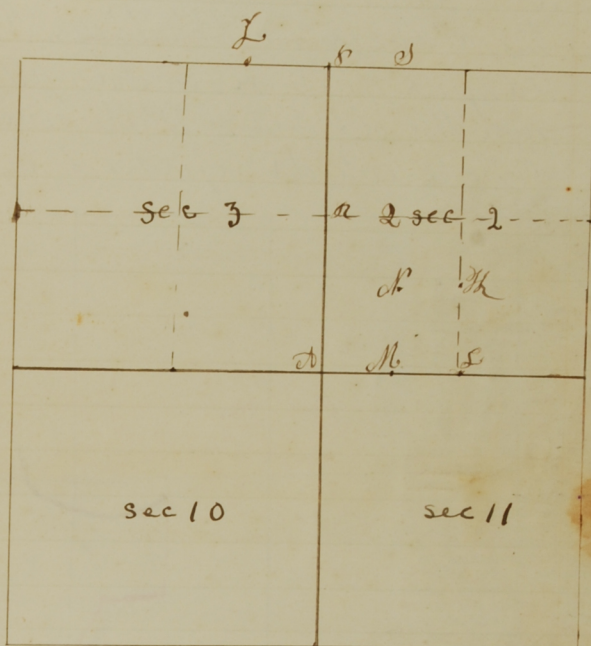 L P S
sec 3 R 2 sec 2
N Th
A M L
sec 10 sec 11